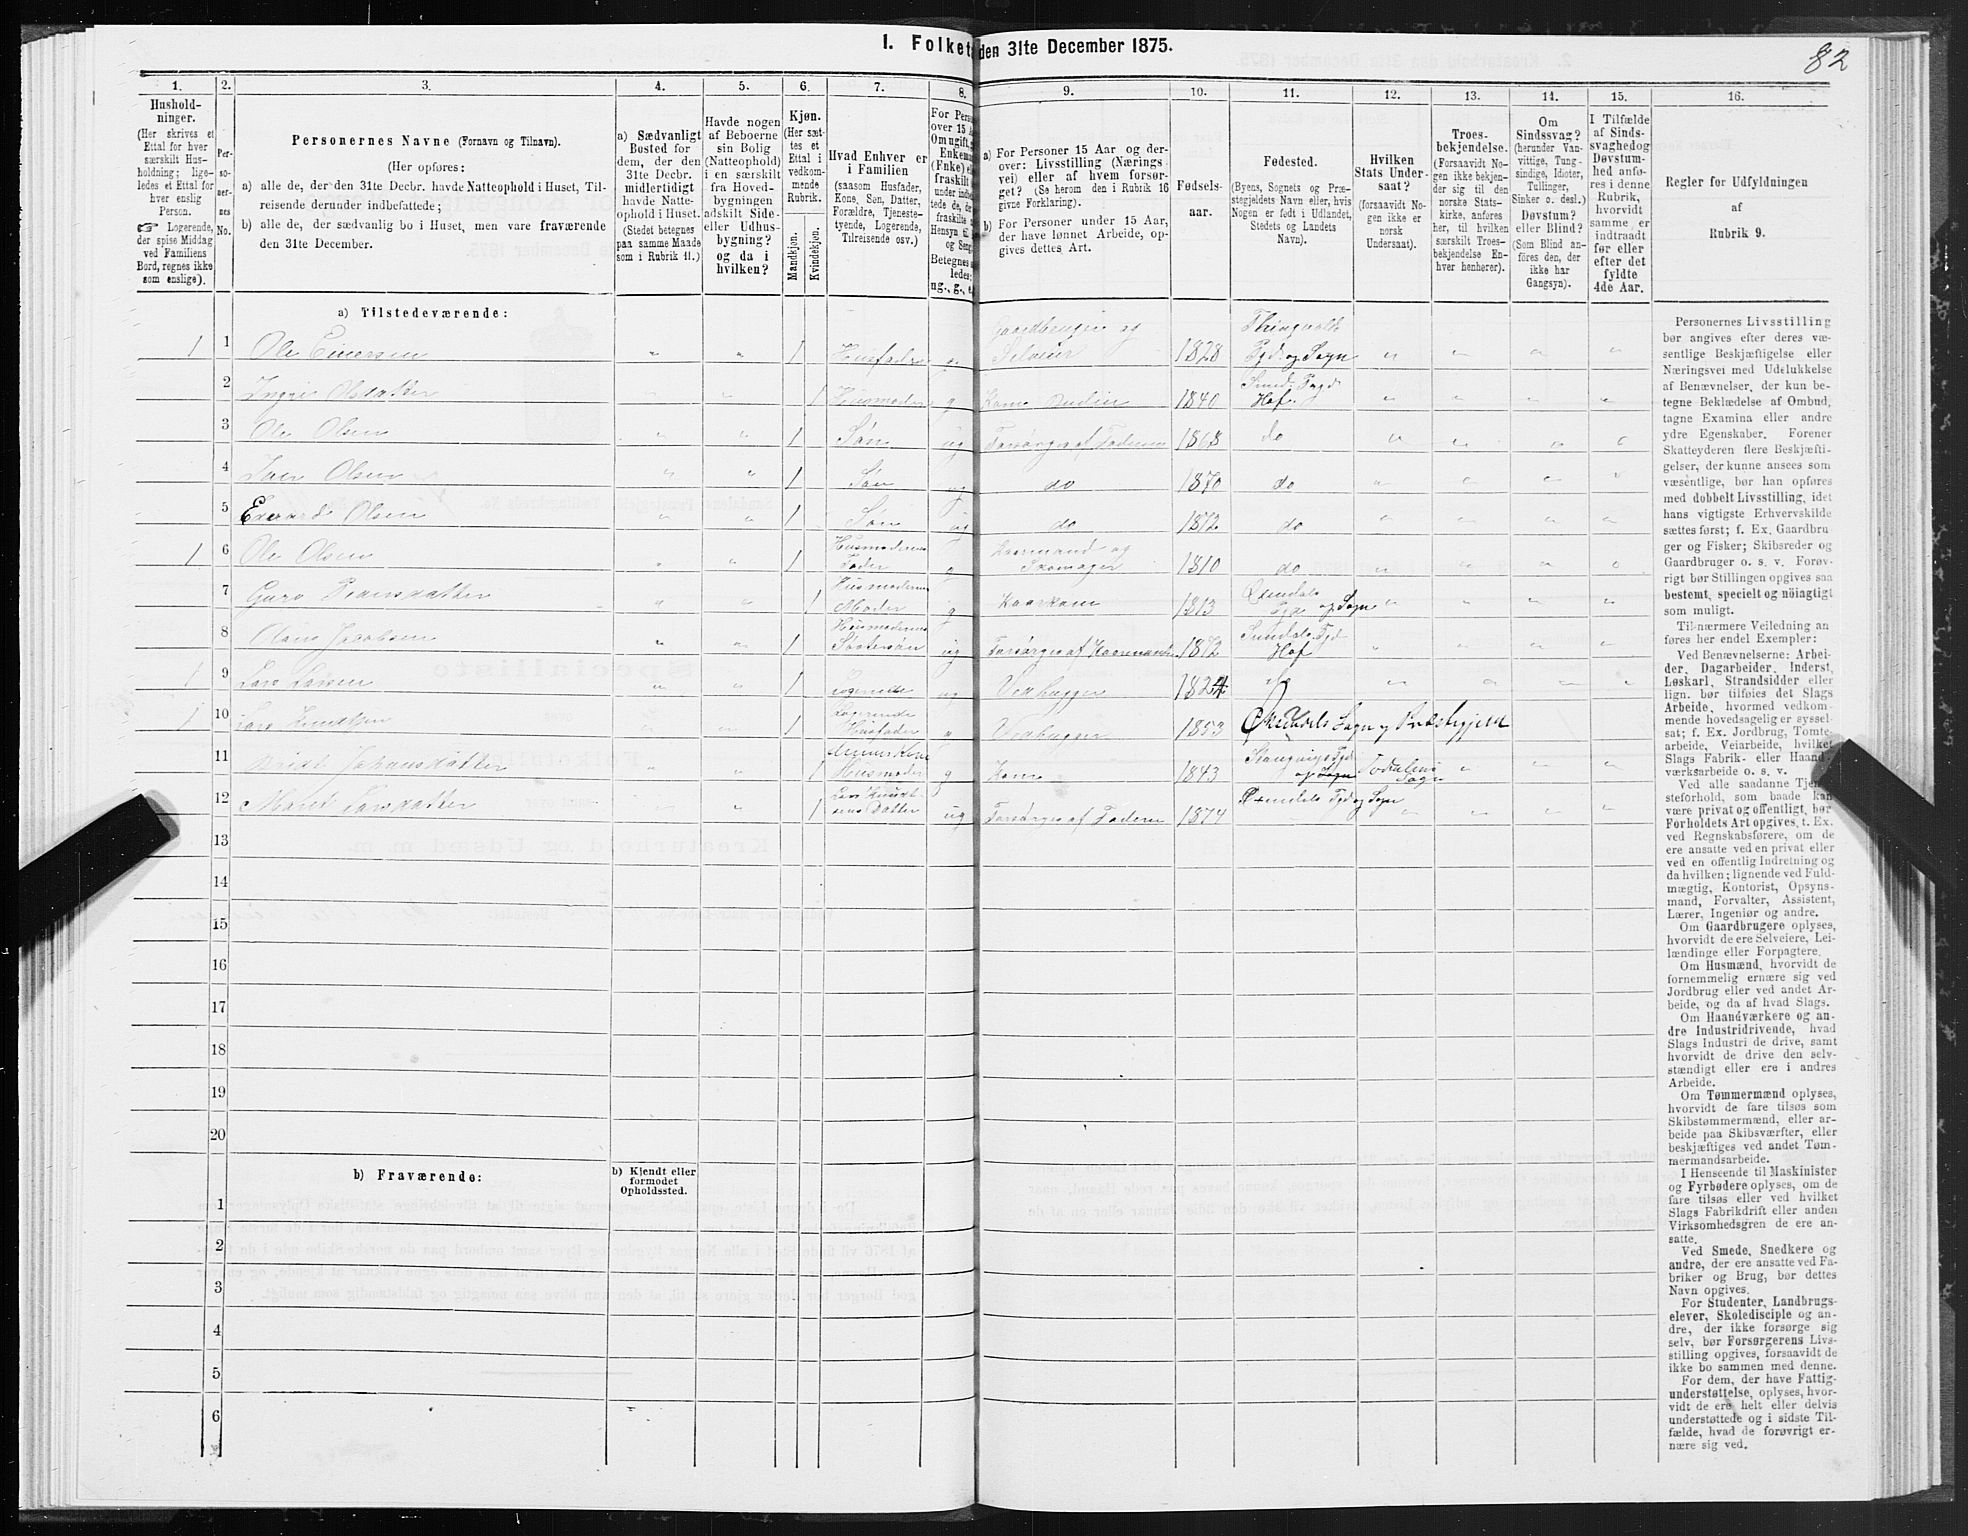 I. Folket den 31te December 1875.
82
1. 2. 3. 4. 5. 6. 7. 8. 9. 10. 11. 12. 13. 14. 15. 16.
Hushold-
ninger.
(Her skrives et
Ettal for hver
særskilt Hus-
holdning; lige-
ledes et Ettal for
hver enslig
Person.
☞ Logerende,
der spise Middag
ved Familiens
Bord, regnes ikke
som enslige).
Per-
so-
ner-
nes
No.
Personernes Navne (Fornavn og Tilnavn).
(Her opføres:
a) alle de, der den 31te Decbr. havde Natteophold i Huset, Til-
reisende derunder indbefattede;
b) alle de, der sædvanlig bo i Huset, men vare fraværende
den 31te December.
a) Sædvanligt
Bosted for
dem, der den
31te Decbr.
midlertidigt
havde Natte-
ophold i Huset.
(Stedet betegnes
paa samme Maade
som i Rubrik 11.)
Havde nogen
af Beboerne
sin Bolig
(Natteophold)
i en særskilt
fra Hoved-
bygningen
adskilt Side-
eller Udhus-
bygning?
og da i
hvilken?
Kjøn.
(Her sæt-
tes et
Ettal i
vedkom-
mende
Rubrik.
Mandkjøn.
Kvindekjøn.
Hvad Enhver er
i Familien
(saasom Husfader,
Kone, Søn, Datter,
Forældre, Tjeneste-
tyende, Logerende,
Tilreisende osv.)
For Perso
over 15 A
Om ugift,
Enkema
(Enke) el
fraskilt
a) For Personer 15 Aar og der-
over: Livsstilling (Nærings
vei) eller af hvem forsør-
get? (Se herom den i Rubrik 16
givne Forklaring).
b) For Personer under 15 Aar,
der have lønnet Arbeide, op-
gives dettes Art.
Fødsels-
aar.
Fødested.
(Byens, Sognets og Præ-
stegjeldets Navn eller, hvis
Nogen er født i Udlandet,
Stedets og Landets
Navn).
Hvilken
Stats Under-
saat?
(forsaavidt No-
gen ikke er
norsk
Undersaat).
Troes-
bekjendelse.
(Forsaavidt No-
gen ikke bekjen-
der sig til den
norske Stats-
kirke, anføres
her, til hvilken
særskilt Troes-
bekjendelse En-
hver henhører).
Om
Sindssvag?
(herunder Van-
vittige, Tung-
sindige, Idioter,
Tullinger,
Sinker o. desl.)
Døvstum?
eller Blind?
(Som Blind an-
føres den, der
ikke har
Gangsyn).
I Tilfælde
af Sinds-
svaghed og
Døvstum-
hed anfø-
res i denne
Rubrik,
hvorvidt
samme er
indtraadt
før eller
efter det
fyldte
4de Aar.
Regler for Udfyldningen
af
Rubrik 9.
a) Tilstedeværende:
1 1 Ole Einersen 1 Husfader Gaardbruger og Selveier 1828 Thingvolds Pgd. og Sogn
2 Olsdatter 1 Husmoder g Kone 1840 Sund. Pgd. Hof
3 Ole Olsen 1 Søn ug Forsørges af Faderen 1868 do
4 Iver Olsen 1 Søn ug do 1870 do
5 Edvard Olsen 1 Søn ug do 1872 do
1 6 Ole Olsen 1 Husmoderens Fader g Kaarmand og Skomager 1810 do
7 Guro 1 Husmoderens Moder g Kaarkone 1813 Pgd og Sogn
8 Jacobsen 1 Husmoderens Søstersøn ug Forsørges af Kaarmanden 1872 Sundals Pgd Hof
1 9 Lars Larsen 1 Logerende ug Vedhugger 1824
1 10 Lars 1 Logerende Husfader g Vedhugger 1853 Øksendals Sogn og Præstegjeld
11 Johansdatter 1 Kone Husmoder g Kone 1843 Stangviks Pgd Todalens Sogn
12 Marit Larsdatter 1 Datter ug Forsørges af Faderen 1874 Pgd og Sogn
13
14
15
16
17
18
19
20
b) Fraværende:
b) Kjendt eller
formodet
Opholdssted.
1
2
3
4
5
6
Personernes Livsstilling
bør angives efter deres væ-
sentlige Beskjæftigelse eller
Næringsvei med Udelukkelse
af Benævnelser, der kun be-
tegne Beklædelse af Ombud,
tagne Examina eller andre
ydre Egenskaber. Forener
Skatteyderen flere Beskjæfti-
gelser, der kunne ansees som
væsentlige, bør han opføres
med dobbelt Livsstilling, idet
hans vigtigste Erhvervskilde
sættes først; f. Ex. Gaardbru
ger og Fisker; Skibsreder og
Gaardbruger o. s. v. Forøv-
rigt bør Stillingen opgives saa
bestemt, specielt og nöiagtigt
som muligt.
Til nærmere Veiledning an
føres her endel Exempler:
Ved Benævnelserne: Arbei-
der, Dagarbeider, Inderst,
Løskarl, Strandsidder eller
lign. bør tilføies det Slags
Arbeide, hvormed vedkom-
mende hovedsagelig er syssel-
sat; f. Ex. Jordbrug, Tomte-
arbeide, Veiarbeide, hvilket
Slags Fabrik- eller Haand-
værksarbeide o. s. v.
Ved alle saadanne Tjen
steforhold, som baade kan
være privat og offentligt, bør
Forholdets Art opgives, t. Ex.
ved Regnskabsførere, om de
ere ansatte ved en privat eller
ved en offentlig Indretning og
da hvilken; lignende ved Fuld-
mægtig, Kontorist, Opsyns-
mand, Forvalter, Assistent,
Lærer, Ingeniør og andre.
Om Gaardbrugere oplyses,
hvorvidt de ere Selveiere, Lei-
lændinge eller Forpagtere.
Om Husmænd, hvorvidt de
fornemmelig ernære sig ved
Jordbrug eller ved andet Ar-
beide, og da af hvad Slags.
Om Haandværkere og an-
dre Industridrivende, hvad
Slags Industri de drive, samt
hvorvidt de drive den selv-
stændigt eller ere i andres
Arbeide.
Om Tømmermænd oplyses,
hvorvidt de fare tilsøs som
Skibstømmermænd, eller ar-
beide paa Skibsværfter, eller
beskjæftiges ved andet Tøm-
mermandsarbeide.
I Henseende til Maskinister
og Fyrbødere oplyses, om de
fare tilsøs eller ved hvilket
Slags Fabrikdrift eller anden
Virksomhedsgren de ere an-
satte.
Ved Smede, Snedkere og
andre, der ere ansatte ved Fa-
briker og Brug, bør dettes
Navn opgives.
For Studenter, Landbrugs-
elever, Skoledisciple og an-
dre, der ikke forsørge sig
selv, bør Forsørgerens Livs-
stilling opgives, forsaavidt de
ikke bo sammen med denne.
For dem, der have Fattig-
understøttelse, oplyses, hvor-
vidt de ere helt eller delvis
understøttede og i sidste Til-
fælde, hvad de forøvrigt er-
nære sig ved.